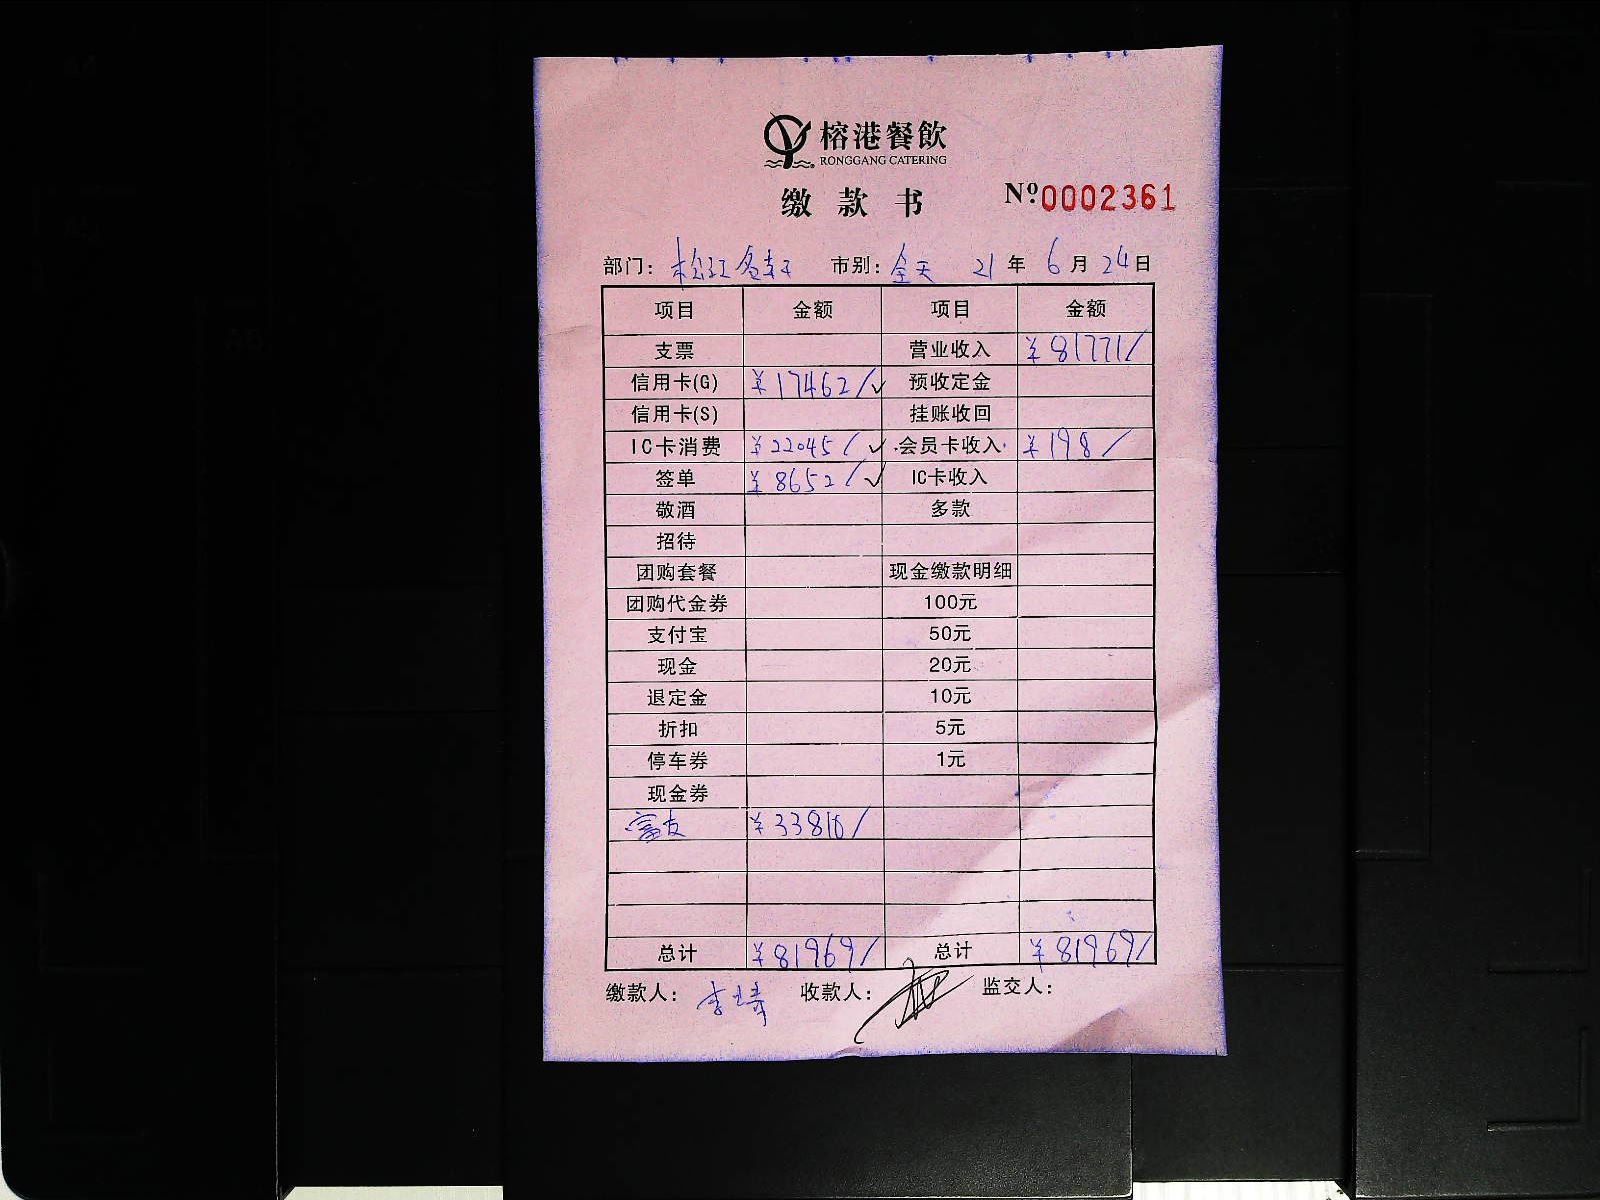 榕港餐飲
RONGGANG CATERING
缴款书 Nº0002361
部门: 松江名轩 市别: 全天 21年6月24日
项目 金额 项目 金额
支票 营业收入 ¥81771/
信用卡(G) ¥17462/✓ 预收定金
信用卡(S) 挂账收回
IC卡消费 ¥22045/✓ 会员卡收入 ¥198/
签单 ¥8652/✓ IC卡收入
敬酒 多款
招待
团购套餐 现金缴款明细
团购代金券 100元
支付宝 50元
现金 20元
退定金 10元
折扣 5元
停车券 1元
现金券
富友 ¥33810/
总计 ¥81969/ 总计 ¥81969/
缴款人: 收款人: 监交人: